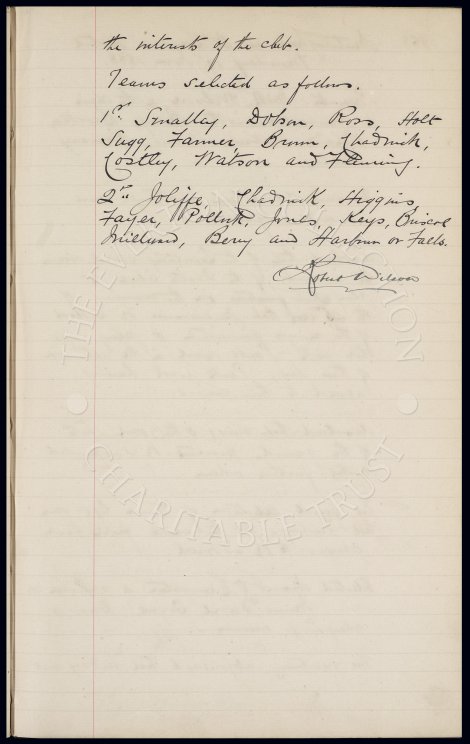 the interests of the club.
Teams selected as follows.
1st Smalley, Dobson, Ross, Holt
Sugg, Farmer, Brown, Chadwick,
Costley, Watson and Fleming.
2nd Joliffe, Chadwick, Higgins,
Fayer, Pollock, Jones, Keys, Briscoe
Milward, Berry and Harbour or Falls.
Robert Wilson
THE EVERTON COLLECTION
CHARITABLE TRUST